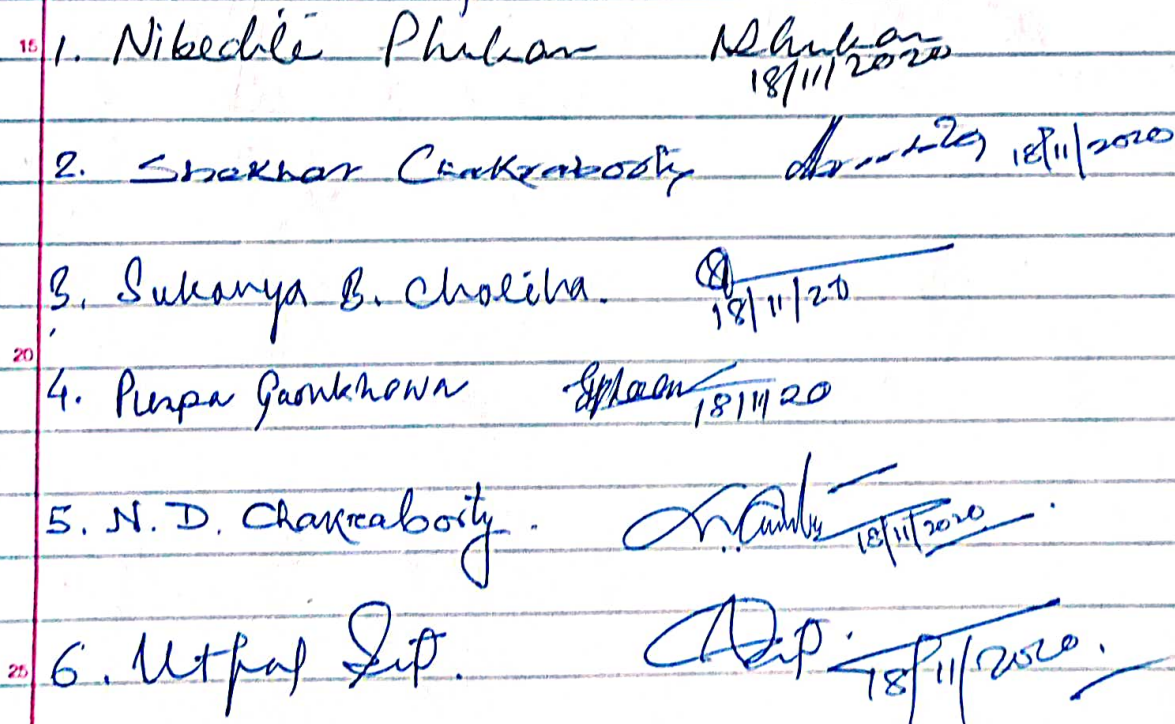 15 1. Nibedita Phukan NPhukan
18/11/2020
2. Shekhar Chakraborty 18/11/2020
3. Sukanya B. Choliha.
18/11/20
20
4. Puspa Gaonkhowa
18/11/20
5. N. D. Chakraborty.
18/11/2020
25 6. Utpal
18/11/2020.